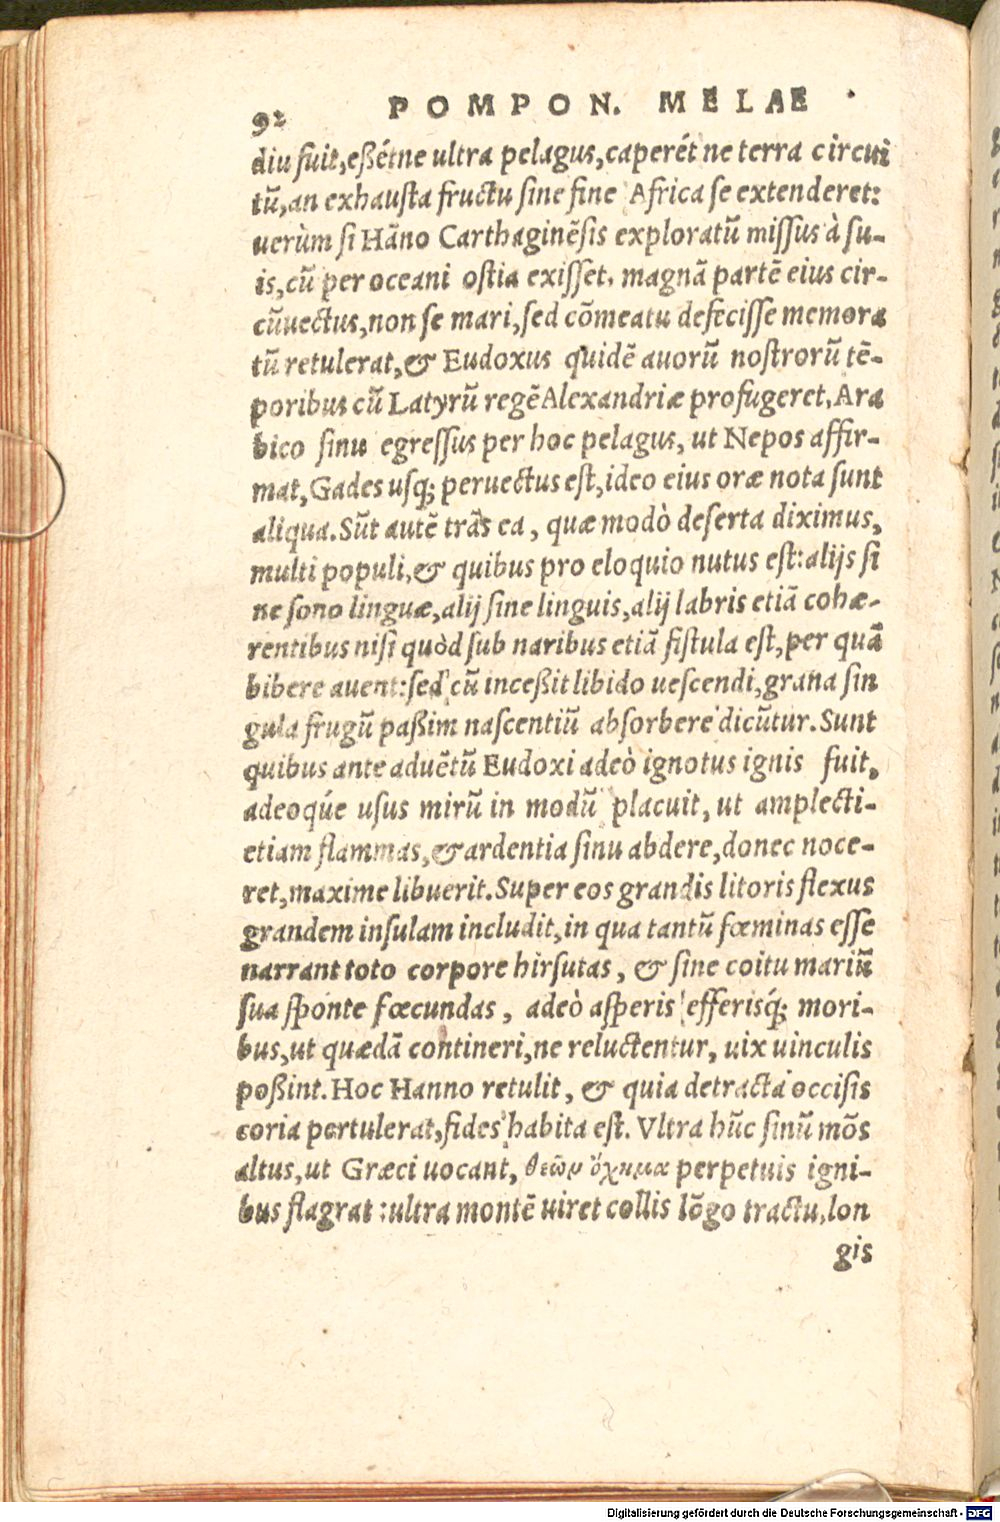 92 POMPON. MELAE
diu fuit,eßétne ultra pelagus,caperét ne terra circui
tũ,an exhausta fructu sine fine Africa se extenderet:
uerùm si Hãno Carthaginẽsis exploratũ missus à su-
is,cũ per oceani ostia exisset, magnã partẽ eius cir-
cũuectus,non se mari,sed cõmeatu defecisse memora
tũ retulerat,& Eudoxus quidẽ auorũ nostrorũ tẽ-
poribus cũ Latyrũ regẽ Alexandriæ profugeret, Ara
bico sinu egressus per hoc pelagus, ut Nepos affir-
mat, Gades usq; peruectus est,ideo eius oræ nota sunt
aliqua. Sũt autẽ trãs ea, quæ modò deserta diximus,
multi populi,& quibus pro eloquio nutus est:alijs si
ne sono linguæ,alij sine linguis,alij labris etiã cohæ-
rentibus nisi quòd sub naribus etiã fistula est,per quã
bibere auent:sed cũ inceßit libido uescendi,grana sin
gula frugũ paßim nascentiũ absorbere dicũtur. Sunt
quibus ante aduẽtũ Eudoxi adeò ignotus ignis fuit,
adeoqúe usus mirũ in modũ placuit, ut amplecti-
etiam flammas,& ardentia sinu abdere,donec noce-
ret,maxime libuerit. Super eos grandis litoris flexus
grandem insulam includit,in qua tantũ fœminas esse
narrant toto corpore hirsutas, & sine coitu mariũ
sua sponte fœcundas, adeò asperis efferisq́; mori-
bus,ut quædã contineri,ne reluctentur, uix uinculis
poßint. Hoc Hanno retulit, & quia detracta occisis
coria pertulerat,fides habita est. Vltra hũc sinũ mõs
altus,ut Græci uocant, θεῶν ὄχημα perpetuis igni-
bus flagrat:ultra montẽ uiret collis lõgo tractu,lon
gis
Digitalisierung gefördert durch die Deutsche Forschungsgemeinschaft - DFG